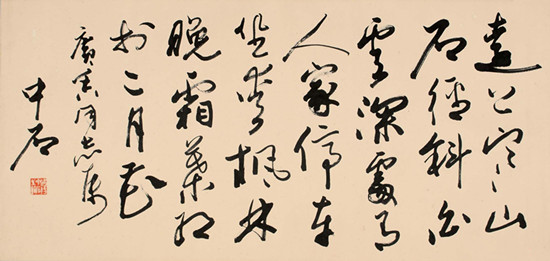 遠上寒山
石徑斜白
雲深處有
人家停車
坐愛楓林
晚霜葉紅
於二月花
廣同志属
中石